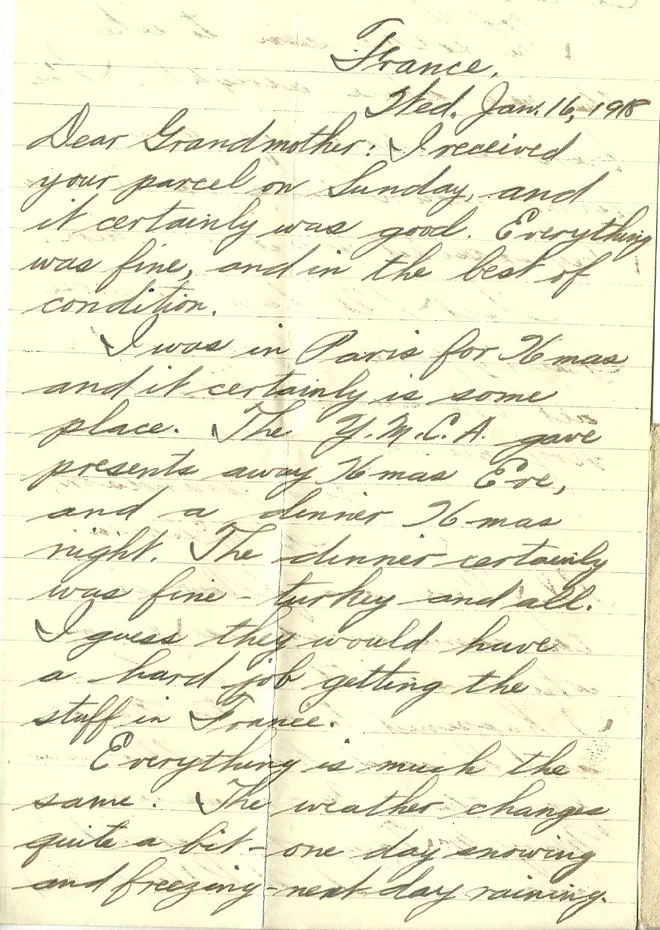 France.
Wed. Jan. 16, 1918
Dear Grandmother: I received
your parcel on Sunday, and
it certainly was good. Everything
was fine, and in the best of
condition.
I was in Paris for Xmas
and it certainly is some
place. The Y.M.C.A. gave
presents away Xmas Eve,
and a dinner Xmas
night. The dinner certainly
was fine - turkey and all.
I guess they would have
a hard job getting the
stuff in France.
Everything is much the
same. The weather changes
quite a bit - one day snowing
and freezing - next day raining.